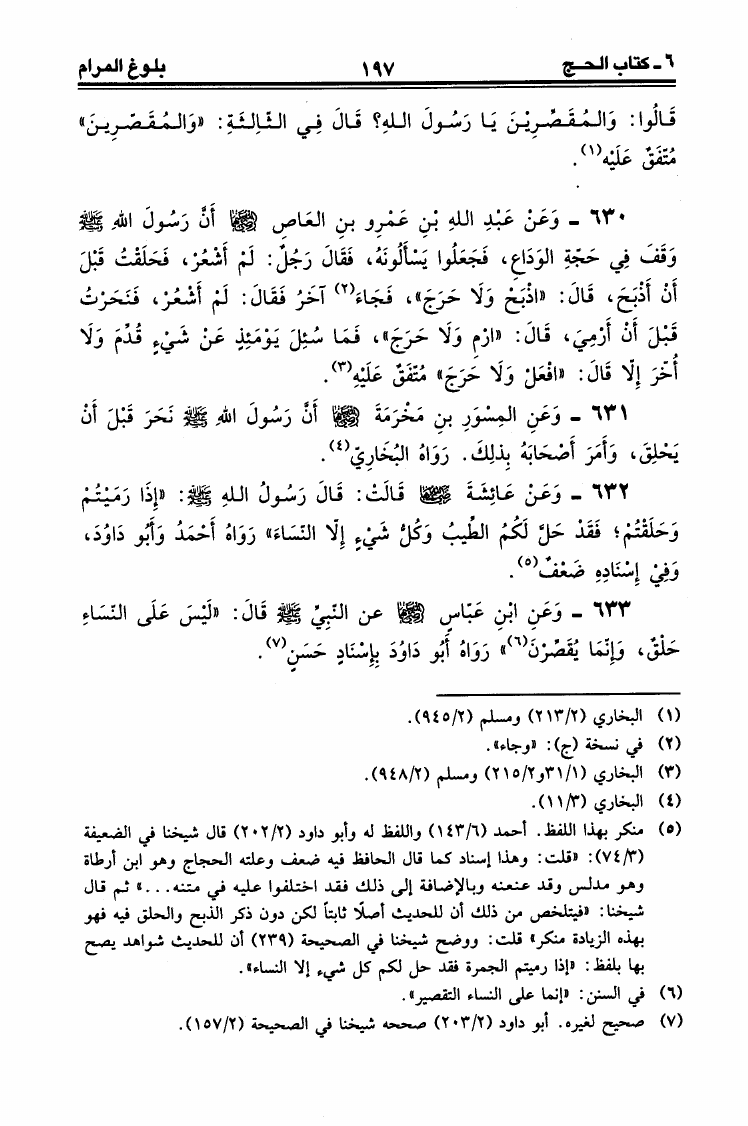 ٦ ـ كتاب الحـج ١٩٧ بلوغ المرام
قَالُوا: وَالْمُقَصِّرِيْنَ يَا رَسُولَ اللهِ؟ قَالَ فِي الثَّالِثَةِ: «وَالْمُقَصِّرِينَ»
مُتَّفَقٌ عَلَيْهِ(١).
٦٣٠ ـ وَعَنْ عَبْدِ اللهِ بْنِ عَمْرِو بنِ العَاصِ ﵄ أَنَّ رَسُولَ اللهِ ﷺ
وَقَفَ فِي حَجَّةِ الوَدَاعِ، فَجَعَلُوا يَسْأَلُونَهُ، فَقَالَ رَجُلٌ: لَمْ أَشْعُرْ، فَحَلَقْتُ قَبْلَ
أَنْ أَذْبَحَ، قَالَ: «اذْبَحْ وَلَا حَرَجَ»، فَجَاءَ(٢) آخَرُ فَقَالَ: لَمْ أَشْعُرْ، فَنَحَرْتُ
قَبْلَ أَنْ أَرْمِيَ، قَالَ: «ارْمِ وَلَا حَرَجَ»، فَمَا سُئِلَ يَوْمَئِذٍ عَنْ شَيْءٍ قُدِّمَ وَلَا
أُخِّرَ إِلَّا قَالَ: «افْعَلْ وَلَا حَرَجَ» مُتَّفَقٌ عَلَيْهِ(٣).
٦٣١ ـ وَعَنِ المِسْوَرِ بنِ مَخْرَمَةَ ﵄ أَنَّ رَسُولَ اللهِ ﷺ نَحَرَ قَبْلَ أَنْ
يَحْلِقَ، وَأَمَرَ أَصْحَابَهُ بِذلِكَ. رَوَاهُ البُخَارِيّ(٤).
٦٣٢ ـ وَعَنْ عَائِشَةَ ﵂ قَالَتْ: قَالَ رَسُولُ اللهِ ﷺ: «إِذَا رَمَيْتُمْ
وَحَلَقْتُمْ؛ فَقَدْ حَلَّ لَكُمُ الطِّيبُ وَكُلُّ شَيْءٍ إِلَّا النِّسَاءَ» رَوَاهُ أَحْمَدُ وَأَبُو دَاوُدَ،
وَفِيْ إِسْنَادِهِ ضَعْفٌ(٥).
٦٣٣ ـ وَعَنِ ابْنِ عَبَّاسٍ ﵄ عن النَّبِيِّ ﷺ قَالَ: «لَيْسَ عَلَى النِّسَاءِ
حَلْقٌ، وَإِنَّمَا يُقَصِّرْنَ(٦)» رَوَاهُ أَبُو دَاوُدَ بِإِسْنَادٍ حَسَنٍ(٧).
(١) البخاري (٢١٣/٢) ومسلم (٩٤٥/٢).
(٢) في نسخة (ج): «وجاء».
(٣) البخاري (٣١/١و٢١٥/٢) ومسلم (٩٤٨/٢).
(٤) البخاري (١١/٣).
(٥) منكر بهذا اللفظ. أحمد (١٤٣/٦) واللفظ له وأبو داود (٢٠٢/٢) قال شيخنا في الضعيفة
(٧٤/٣): «قلت: وهذا إسناد كما قال الحافظ فيه ضعف وعلته الحجاج وهو ابن أرطاة
وهو مدلس وقد عنعنه وبالإضافة إلى ذلك فقد اختلفوا عليه في متنه...» ثم قال
شيخنا: «فيتلخص من ذلك أن للحديث أصلًا ثابتاً لكن دون ذكر الذبح والحلق فيه فهو
بهذه الزيادة منكر» قلت: ووضح شيخنا في الصحيحة (٢٣٩) أن للحديث شواهد يصح
بها بلفظ: «إذا رميتم الجمرة فقد حل لكم كل شيء إلا النساء».
(٦) في السنن: «إنما على النساء التقصير».
(٧) صحيح لغيره. أبو داود (٢٠٣/٢) صححه شيخنا في الصحيحة (١٥٧/٢).